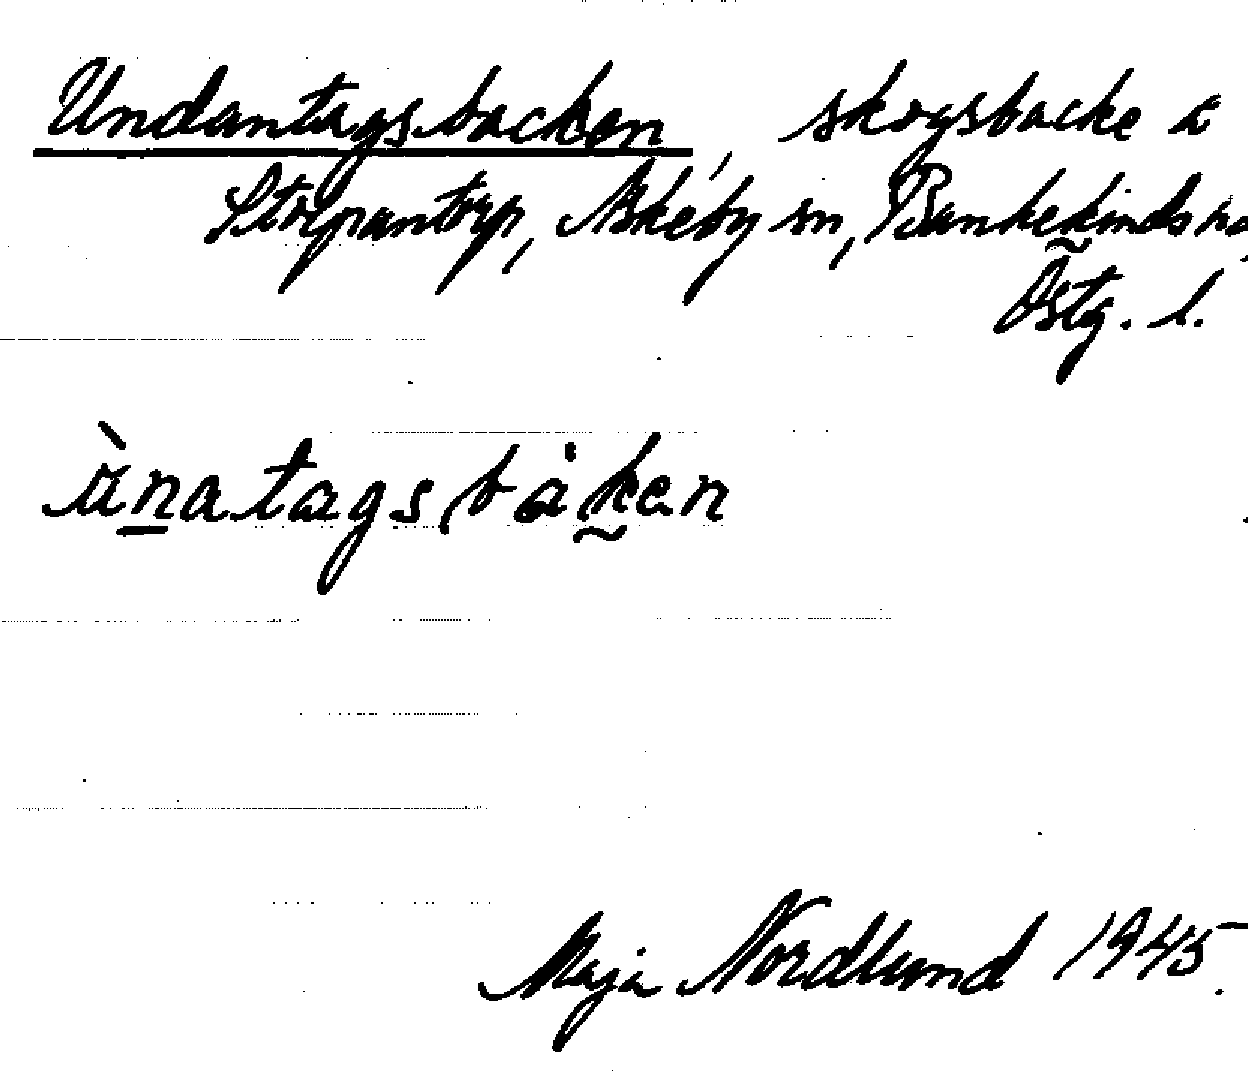 Undantagsbacken, skogsbacke å
Storpantorp, Askeby sn, Bankekinds hd,
Östg. l.
ùnatagsbàken
Maja Nordlund 1945.